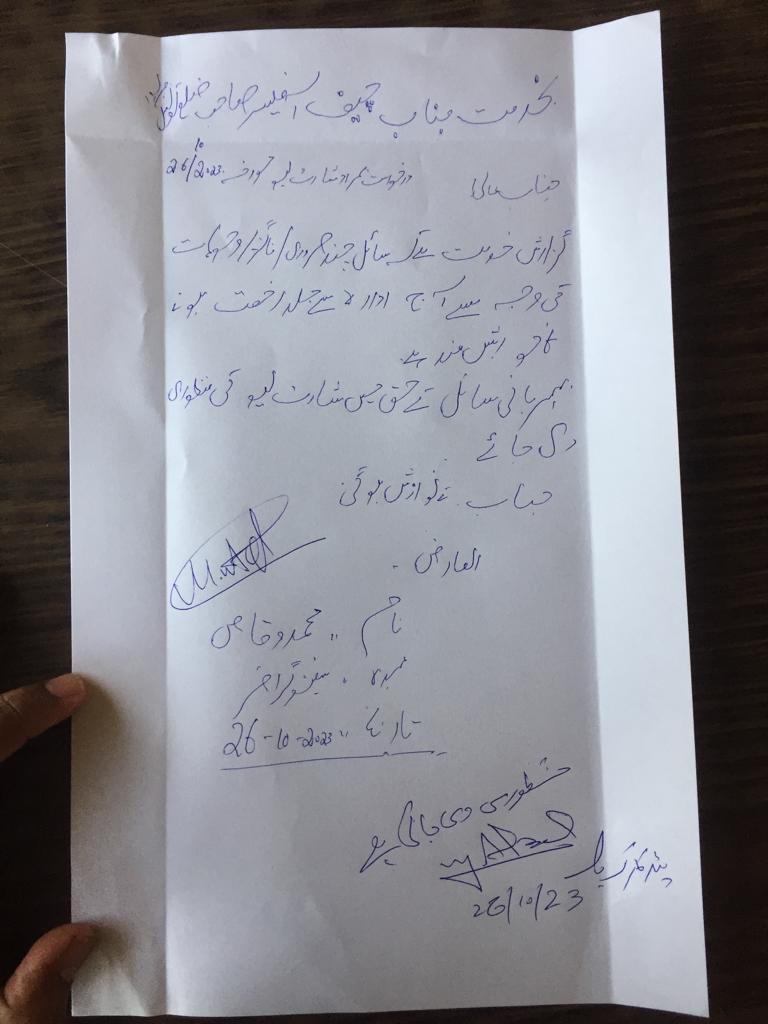 بخدمت جناب چیف آفیسر صاحب ضلع کونسل
درخواست بمراد شارٹ لیو مورخہ 26/10/2023
جناب عالی!
گزارش خدمت ہے کہ سائل چند ضروری/ناگزیر وجوہات
کی وجہ سے آج ادارہ سے جلد رخصت ہونے
کا خواہش مند ہے۔
بمہربانی سائل کے حق میں شارٹ لیو کی منظوری
دی جائے
جناب کی نوازش ہوگی
العارض۔
نام :۔ محمد وقاص
عہدہ :۔ سٹینوگرافر
تاریخ :۔ 26-10-2023
منظوری دی جاتی ہے
ہیڈ کلرک
26/10/23